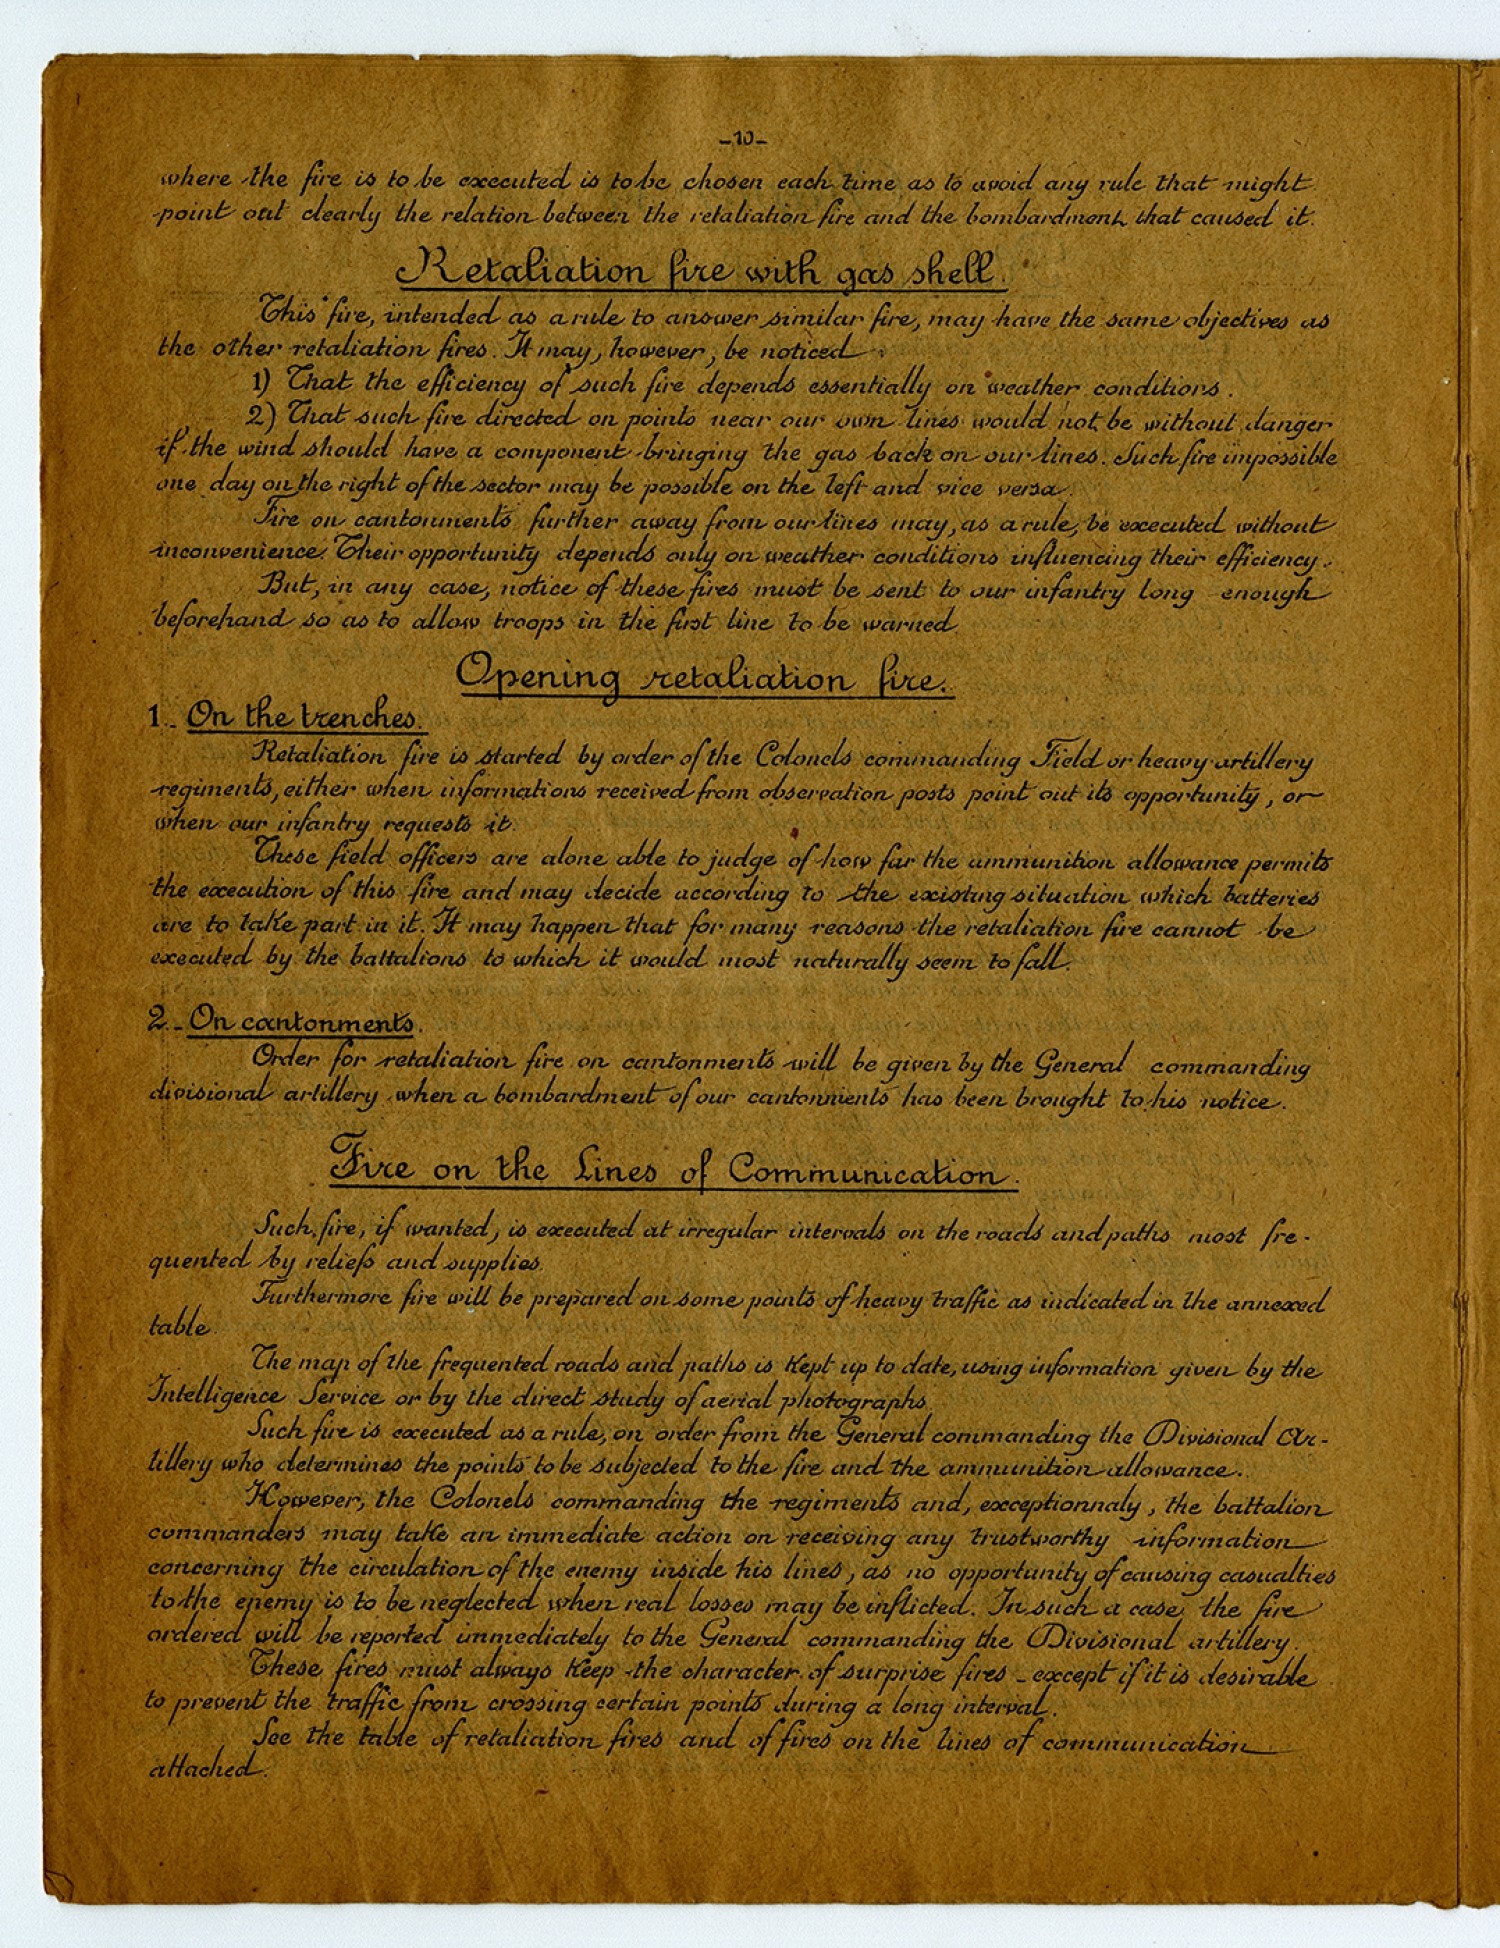 -10-
where the fire is to be executed is to be chosen each time as to avoid any rule that might
point out clearly the relation between the retaliation fire and the bombardment that caused it.
Retaliation fire with gas shell.
This fire, intended as a rule to answer similar fire, may have the same objectives as
the other retaliation fires. It may, however, be noticed
1) That the efficiency of such fire depends essentially on weather conditions.
2) That such fire directed on points near our own lines would not be without danger
if the wind should have a component bringing the gas back on our lines. Such fire impossible
one day on the right of the sector may be possible on the left and vice versa.
Fire on cantonments further away from our lines may, as a rule, be executed without
inconvenience. Their opportunity depends only on weather conditions influencing their efficiency.
But, in any case, notice of these fires must be sent to our infantry long enough
beforehand so as to allow troops in the first line to be warned.
Opening retaliation fire.
1.- On the trenches.
Retaliation fire is started by order of the Colonels commanding Field or heavy artillery
regiments, either when informations received from observation posts point out its opportunity, or
when our infantry requests it.
These field officers are alone able to judge of how far the ammunition allowance permits
the execution of this fire and may decide according to the existing situation which batteries
are to take part in it. It may happen that for many reasons the retaliation fire cannot be
executed by the battalions to which it would most naturally seem to fall.
2.- On cantonments.
Order for retaliation fire on cantonments will be given by the General commanding
divisional artillery when a bombardment of our cantonments has been brought to his notice.
Fire on the Lines of Communication.
Such fire, if wanted, is executed at irregular intervals on the roads and paths most fre-
quented by reliefs and supplies.
Furthermore fire will be prepared on some points of heavy traffic as indicated in the annexed
table.
The map of the frequented roads and paths is kept up to date, using information given by the
Intelligence Service or by the direct study of aerial photographs.
Such fire is executed as a rule, on order from the General commanding the Divisional Ar-
tillery who determines the points to be subjected to the fire and the ammunition allowance.
However, the Colonels commanding the regiments and, exceptionnaly, the battalion
commanders may take an immediate action on receiving any trustworthy information
concerning the circulation of the enemy inside his lines, as no opportunity of causing casualties
to the enemy is to be neglected when real losses may be inflicted. In such a case, the fire
ordered will be reported immediately to the General commanding the Divisional artillery.
These fires must always keep the character of surprise fires - except if it is desirable
to prevent the traffic from crossing certain points during a long interval.
See the table of retaliation fires and of fires on the lines of communication
attached.